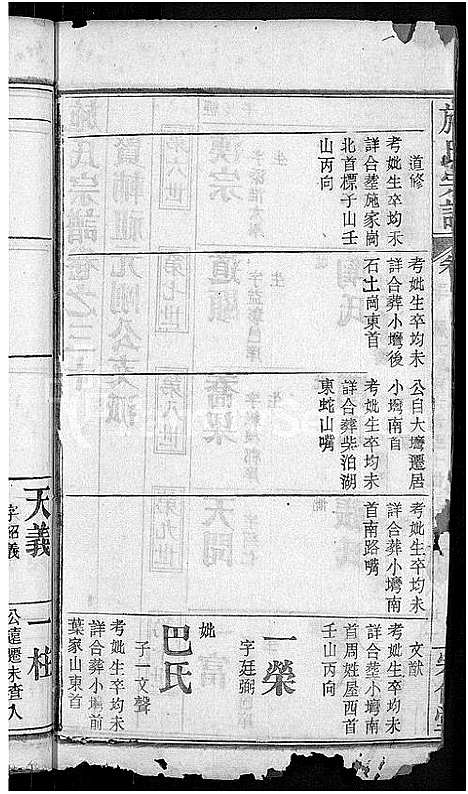 施氏宗譜
卷
道修
考妣生卒均未
詳合塟施家崗
北首標子山壬
山丙向
考妣生卒均未
詳合葬小塆後
石土崗東首
公自大塆遷居
小塆南首
考妣生卒均未
詳合葬柴泊湖
東蛇山嘴
考妣生卒均未
詳合葬小塆南
首南路嘴
文猷
考妣生卒均未
詳合塟小塆南
首周姓屋西首
壬山丙向
一榮
字廷弼
妣
巴氏
子一文聲
考妣生卒均未
詳合塟小塆前
葉家山東首
天義
字紹義
一柱
公遠遷未查入